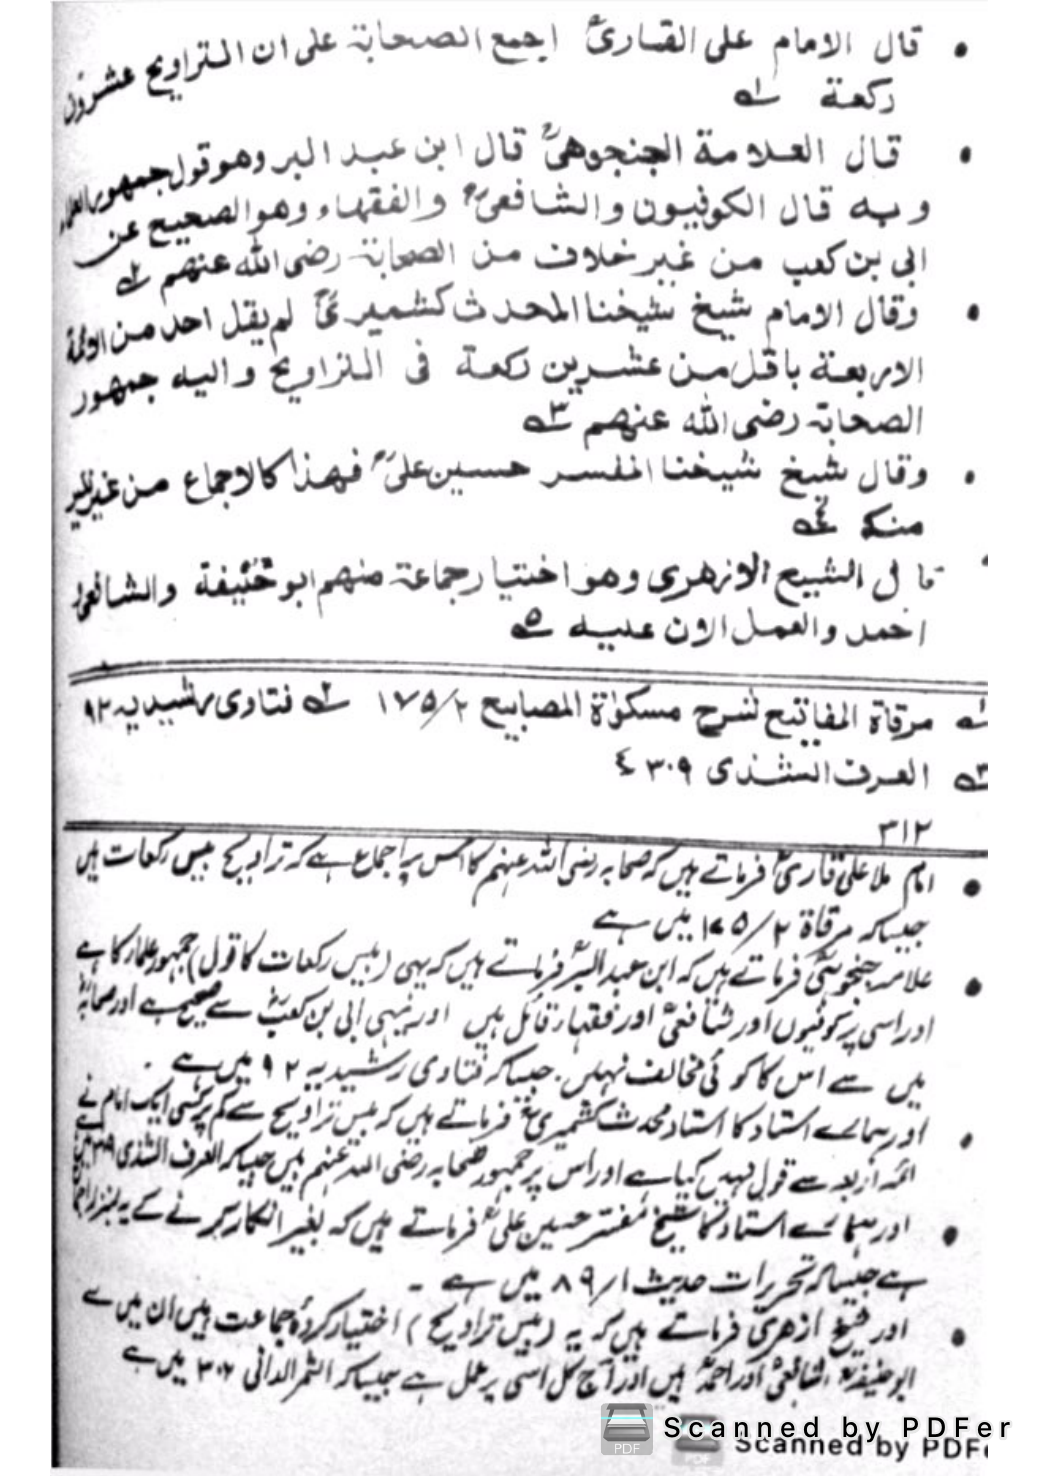 • قال الامام على القارىؒ اجمع الصحابة على ان التراويح عشرون
ركعة ١ـه
• قال العلامة الجنجوهىؒ قال ابن عبد البر وهو قول جمهور العلماء
وبه قال الكوفيون والشافعىؒ والفقهاء وهو الصحيح عن
ابى بن كعب من غير خلاف من الصحابة رضى الله عنهم ٢ـه
• وقال الامام شيخ شيخنا المحدث كشميرىؒ لم يقل احد من الائمة
الاربعة باقل من عشرين ركعة فى التراويح واليه جمهور
الصحابة رضى الله عنهم ٣ـه
• وقال شيخ شيخنا المفسر حسين علىؒ فهذا كالاجماع من غير نكير
منكر ٤ـه
• قال الشيخ الازهرى وهو اختيار جماعة منهم ابو حنيفة والشافعى
احمد والعمل الان عليه ٥ـه
١ـه مرقاة المفاتيح لشرح مسكوٰة المصابيح ١٧٥/٢ ٢ـه فتاوى رشيديه ٩٢
٣ـه العرف الشذى ٣٠٩ ٤
٣١٢
• امام ملا علی قاریؒ فرماتے ہیں کہ صحابہ رضی اللہ عنہم کا اس پر اجماع ہے کہ تراویح بیس رکعات ہیں
جیساکہ مرقاة ١٧٥/٢ میں ہے
• علامہ جنجوہیؒ فرماتے ہیں کہ ابن عبد البرؒ فرماتے ہیں کہ یہی (بیس رکعات کا قول) جمہور علماء کا ہے
اور اسی پر کوفیوں اور شافعیؒ اور فقہاء قائل ہیں اور یہی ابی بن کعبؓ سے صحیح ہے اور صحابہؓ
میں سے اس کا کوئی مخالف نہیں. جیساکہ فتاوی رشیدیہ ٩٢ میں ہے .
• اور ہمارے استاد کا استاد محدث کشمیریؒ فرماتے ہیں کہ بیس تراویح سے کم پر کسی ایک امام نے
ائمہ اربعہ سے قول نہیں کیا ہے اور اس پر جمہور صحابہ رضی اللہ عنہم ہیں جیسا کہ العرف الشذی ٣٠٩ میں ہے
• اور ہمارے استاد کا شیخ مفسر حسین علیؒ فرماتے ہیں کہ بغیر انکار کرنے کے یہ بمنزلہ اجماع
ہے جیساکہ تحریرات حدیث ٨٩/١ میں ہے -
• اور شیخ ازھری فرماتے ہیں کہ یہ (بیس تراویح) اختیار کردہ جماعت ہیں ان میں سے
ابو حنیفہؒ الشافعیؒ اور احمدؒ ہیں اور آج کل اسی پر عمل ہے جیساکہ الثمر الدانی ٣٠٢ میں ہے
Scanned by PDFer
Scanned by PDFe